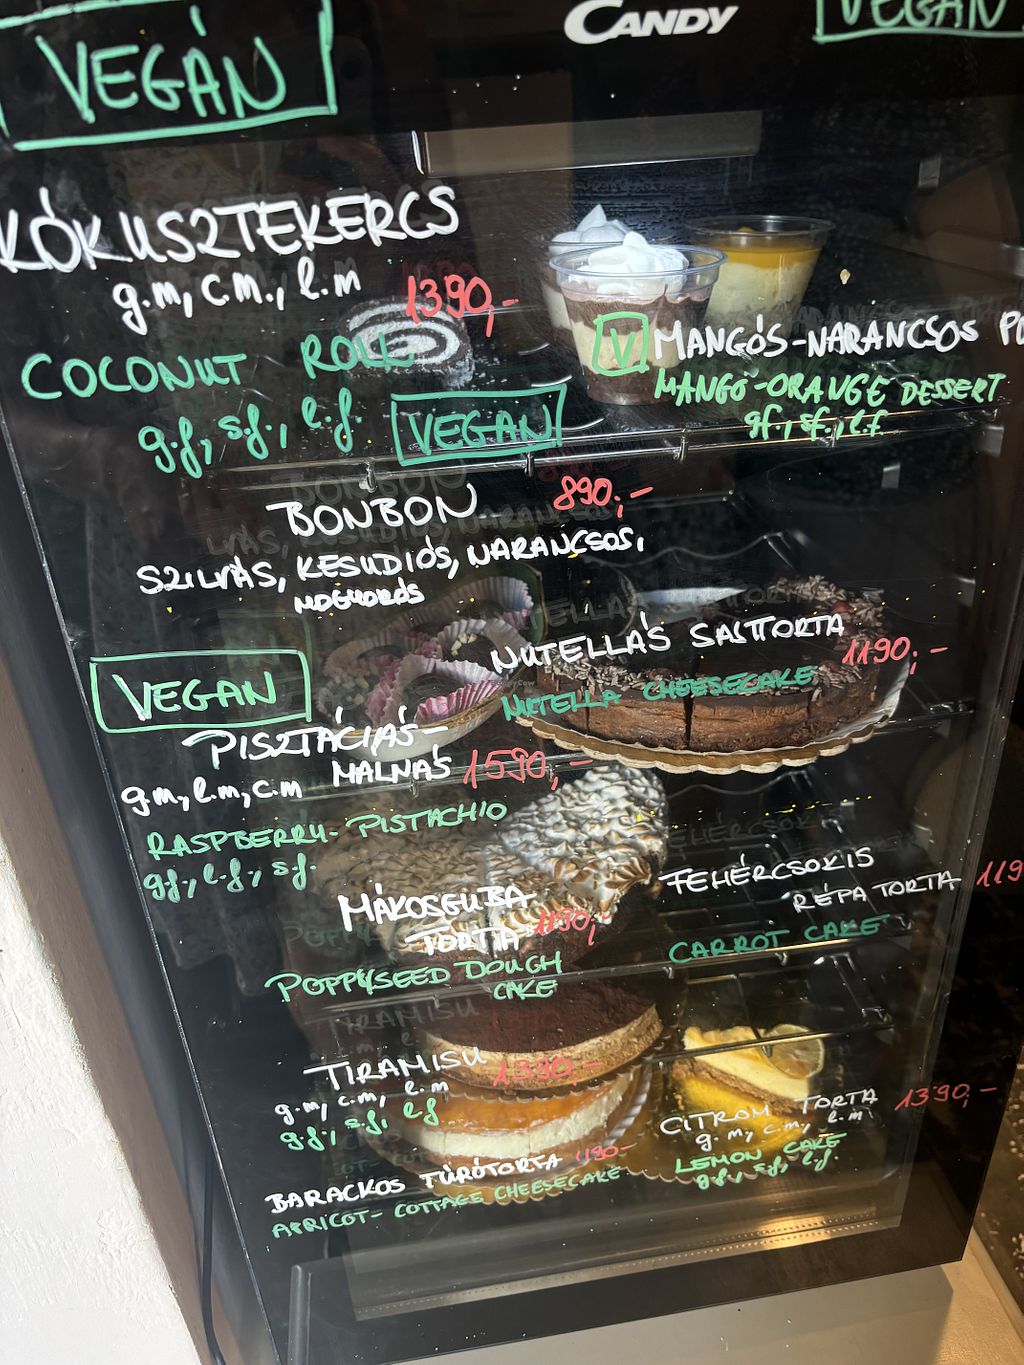 CANDY
VEGÁN
VEGAN
KÓKUSZTEKERCS
g.m, c.m., l.m 1390,-
COCONUT ROLL
g.f, s.f., l.f. VEGAN
V MANGÓS-NARANCSOS
MANGO-ORANGE DESSERT
gf., sf., l.f.
BONBON 890,-
SZILVÁS, KESUDIÓS, NARANCSOS,
MOGYORÓS
NUTELLÁS SAJTTORTA 1190,-
NUTELLA CHEESECAKE
VEGAN
PISZTÁCIÁS-
MALNÁS 1590,-
g.m, l.m, c.m
RASPBERRY-PISTACHIO
g.f., l.f., s.f.
MÁKOSGUBA
TORTA 1190,-
POPPYSEED DOUGH
CAKE
FEHÉRCSOKIS
RÉPA TORTA 119
CARROT CAKE
TIRAMISU 1390,-
g.m, c.m, l.m
g.f., s.f, l.f
CITROM TORTA 1390,-
g.m, c.m, l.m
LEMON CAKE
g.f., s.f., l.f.
BARACKOS TÚRÓTORTA 1190-
APRICOT-COTTAGE CHEESECAKE